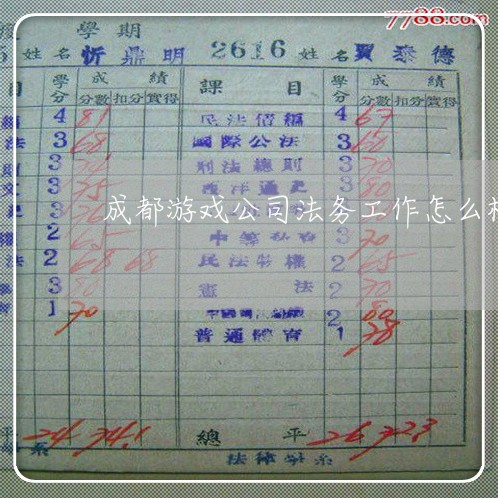 7788.com
學期
姓名 忻鼎明 2616 姓名 賈泰德
目 學分 成績 課目 學分 成績
分數 扣分 實得 分數 扣分 實得
4 81 民法債編 4 67
法 3 68 國際公法 3 60
3 刑法總則 3 70
3 75 西洋通史 3 80
成都游戏公司法务工作怎么
2 65 3 70
法 2 68 68 民法物權 2 65
3 80 憲法 2 70
1 70 2 80
普通體育 1 78
平 24 74.1 總平 26 72.3
系 法律學系